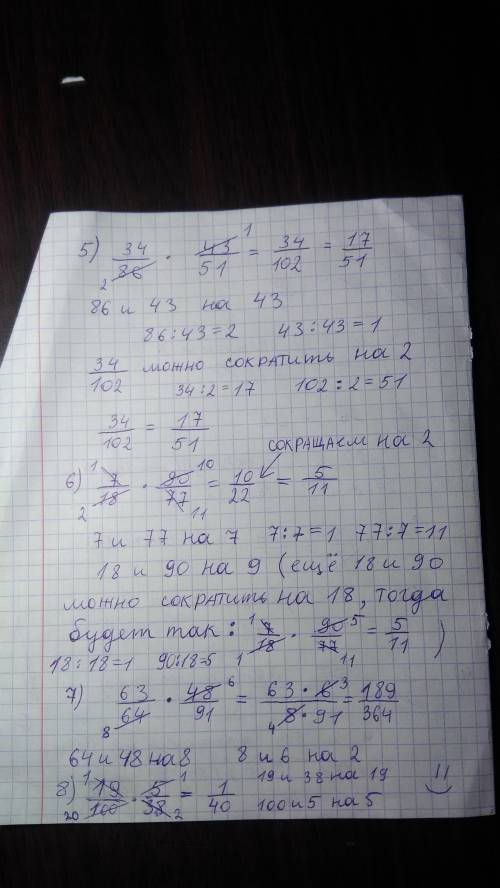 5) 34/86 2 · 43/51 1 = 34/102 = 17/51
86 и 43 на 43
86:43=2 43:43=1
34/102 можно сократить на 2
34:2=17 102:2=51
34/102 = 17/51
сокращаем на 2
6) 1 7/18 2 · 90/77 10 11 = 10/22 = 5/11
7 и 77 на 7 7:7=1 77:7=11
18 и 90 на 9 (ещё 18 и 90
можно сократить на 18, тогда
будет так: 1 7/18 1 · 90/77 5 11 = 5/11 )
18:18=1 90:18=5
7) 63/64 8 · 48/91 6 = 63·6/8·91 3 4 = 189/364
64 и 48 на 8 8 и 6 на 2
8) 1 19/100 20 · 5/38 1 2 = 1/40 19 и 38 на 19
100 и 5 на 5